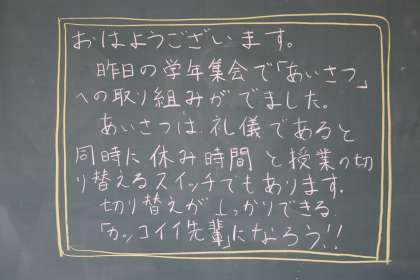 おはようございます。
昨日の学年集会で「あいさつ」
への取り組みがでました。
あいさつは、礼儀であると
同時に休み時間と授業の切
り替えるスイッチでもあります。
切り替えがしっかりできる
「カッコイイ先輩」になろう!!